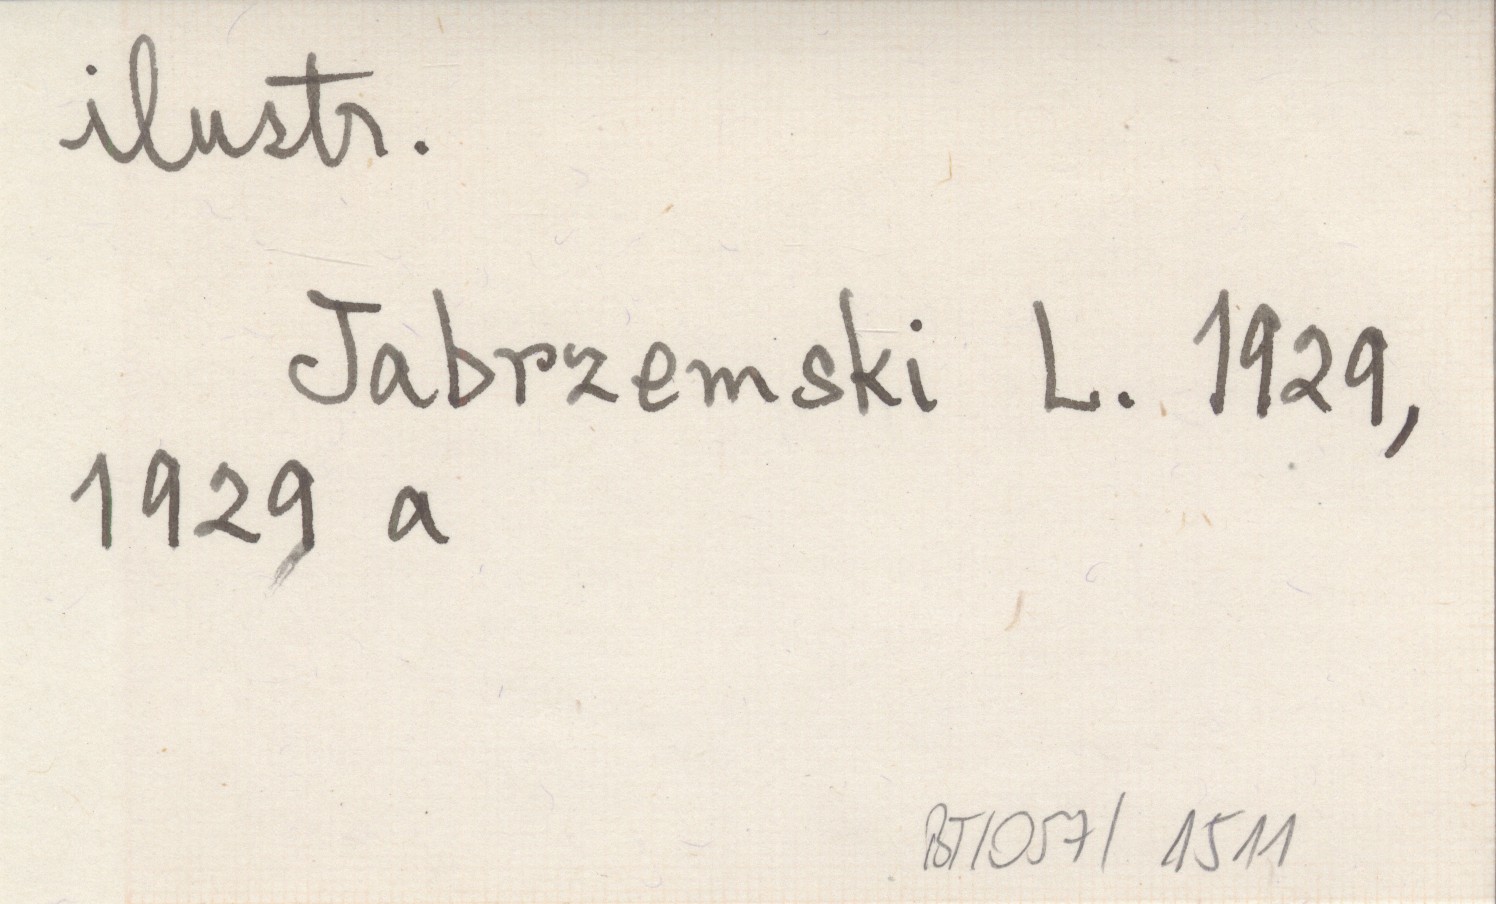 ilustr.
Jabrzemski L. 1929,
1929 a
BT/057/ 1511